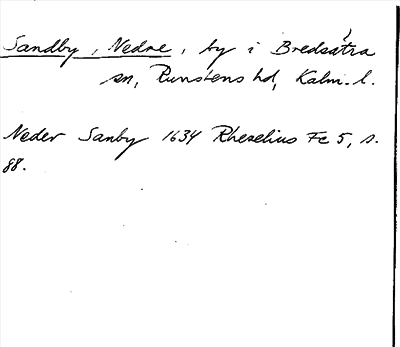 Sandby, Nedre, by i Bredsätra
sn, Runstens hd, Kalm. l.
Neder Sanby 1634 Rhezelius Fc 5, s.
88.